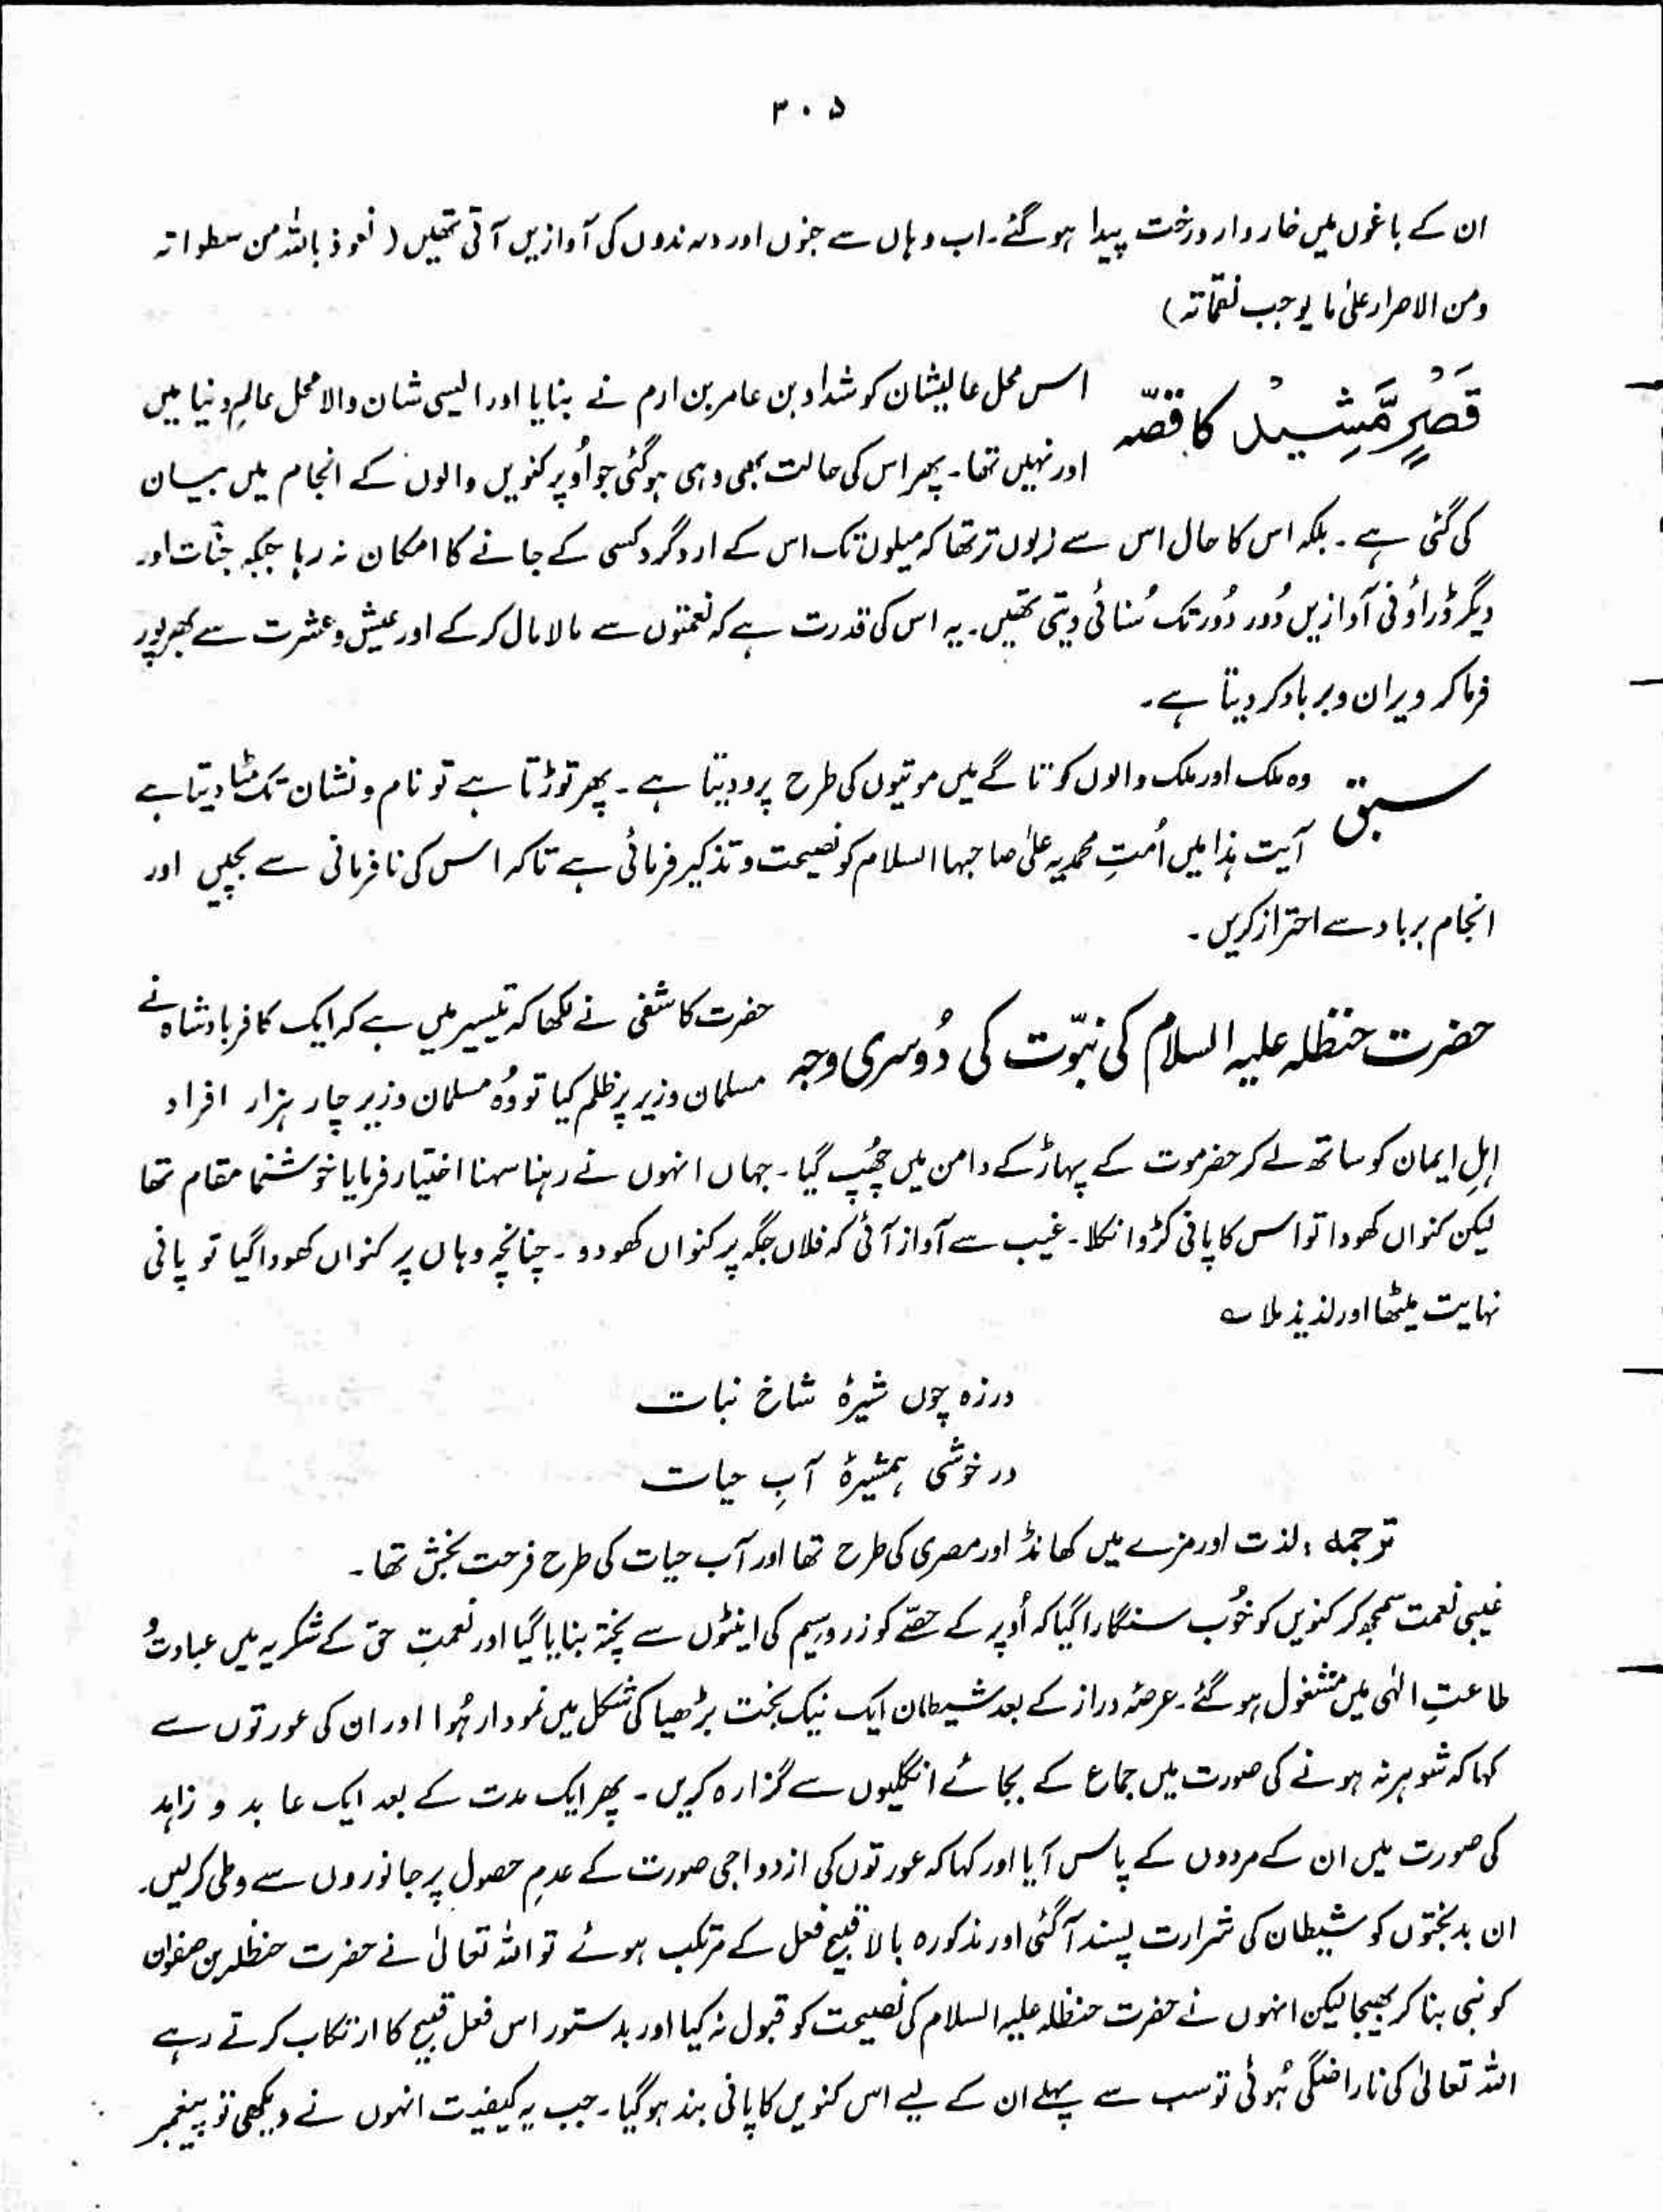 ۳۰۵
ان کے باغوں میں خاردار درخت پیدا ہوگئے۔ اب وہاں سے جنوں اور درندوں کی آوازیں آتی تھیں (نعوذ باللہ من سطواتہ
ومن الاصرار علیٰ ما یوجب نقماتہ)
قَصْرٍ مَّشِیْدٍ کا قصّہ
اس محل عالیشان کو شداد بن عامر بن ارم نے بنایا اور ایسی شان والا محل عالمِ دنیا میں
اور نہیں تھا۔ پھر اس کی حالت بھی وہی ہوگئی جو اُوپر کنویں والوں کے انجام میں بیان
کی گئی ہے۔ بلکہ اس کا حال اس سے زبوں تر تھا کہ میلوں تک اس کے اردگرد کسی کے جانے کا امکان نہ رہا جبکہ جنّات اور
دیگر ڈراؤنی آوازیں دُور دُور تک سُنائی دیتی تھیں۔ یہ اس کی قدرت ہے کہ نعمتوں سے مالا مال کرکے اور عیش و عشرت سے بھرپور
فرما کر ویران و برباد کر دیتا ہے۔
سبق
وہ ملک اور ملک والوں کو تاگے میں موتیوں کی طرح پرو دیتا ہے۔ پھر توڑتا ہے تو نام و نشان تک مٹا دیتا ہے
آیت ہٰذا میں اُمتِ محمدیہ علیٰ صاحبہا السلام کو نصیحت و تذکیر فرمائی ہے تاکہ اس کی نافرمانی سے بچیں اور
انجام برباد سے احتراز کریں۔
حضرت حنظلہ علیہ السلام کی نبوّت کی دُوسری وجہ
حضرت کاشفی نے لکھا کہ تیسیر میں ہے کہ ایک کافر بادشاہ نے
مسلمان وزیر پر ظلم کیا تو وُہ مسلمان وزیر چار ہزار افراد
اہلِ ایمان کو ساتھ لے کر حضرموت کے پہاڑ کے دامن میں چھُپ گیا۔ جہاں انہوں نے رہنا سہنا اختیار فرمایا خوشنما مقام تھا
لیکن کنواں کھودا تو اس کا پانی کڑوا نکلا۔ غیب سے آواز آئی کہ فلاں جگہ پر کنواں کھودو۔ چنانچہ وہاں پر کنواں کھودا گیا تو پانی
نہایت میٹھا اور لذیذ ملا ؎
درزہ چوں شیرۂ شاخ نبات
در خوشی ہمشیرۂ آبِ حیات
ترجمہ : لذت اور مزے میں کھانڈ اور مصری کی طرح تھا اور آب حیات کی طرح فرحت بخش تھا۔
غیبی نعمت سمجھ کر کنویں کو خُوب سنگارا گیا کہ اُوپر کے حصّے کو زر و سیم کی اینٹوں سے پختہ بنایا گیا اور نعمتِ حق کے شکریہ میں عبادت و
طاعتِ الٰہی میں مشغول ہوگئے۔ عرصۂ دراز کے بعد شیطان ایک نیک بخت بڑھیا کی شکل میں نمودار ہُوا اور ان کی عورتوں سے
کہا کہ شوہر نہ ہونے کی صورت میں جماع کے بجائے انگلیوں سے گزارہ کریں۔ پھر ایک مدت کے بعد ایک عابد و زاہد
کی صورت میں ان کے مردوں کے پاس آیا اور کہا کہ عورتوں کی ازدواجی صورت کے عدمِ حصول پر جانوروں سے وطی کرلیں۔
ان بدبختوں کو شیطان کی شرارت پسند آگئی اور مذکورہ بالا قبیح فعل کے مرتکب ہوئے تو اللہ تعالیٰ نے حضرت حنظلہ بن صفوان
کو نبی بنا کر بھیجا لیکن انہوں نے حضرت حنظلہ علیہ السلام کی نصیحت کو قبول نہ کیا اور بدستور اس فعل قبیح کا ارتکاب کرتے رہے
اللہ تعالیٰ کی ناراضگی ہُوئی تو سب سے پہلے ان کے لیے اس کنویں کا پانی بند ہوگیا۔ جب یہ کیفیت انہوں نے دیکھی تو پیغمبر